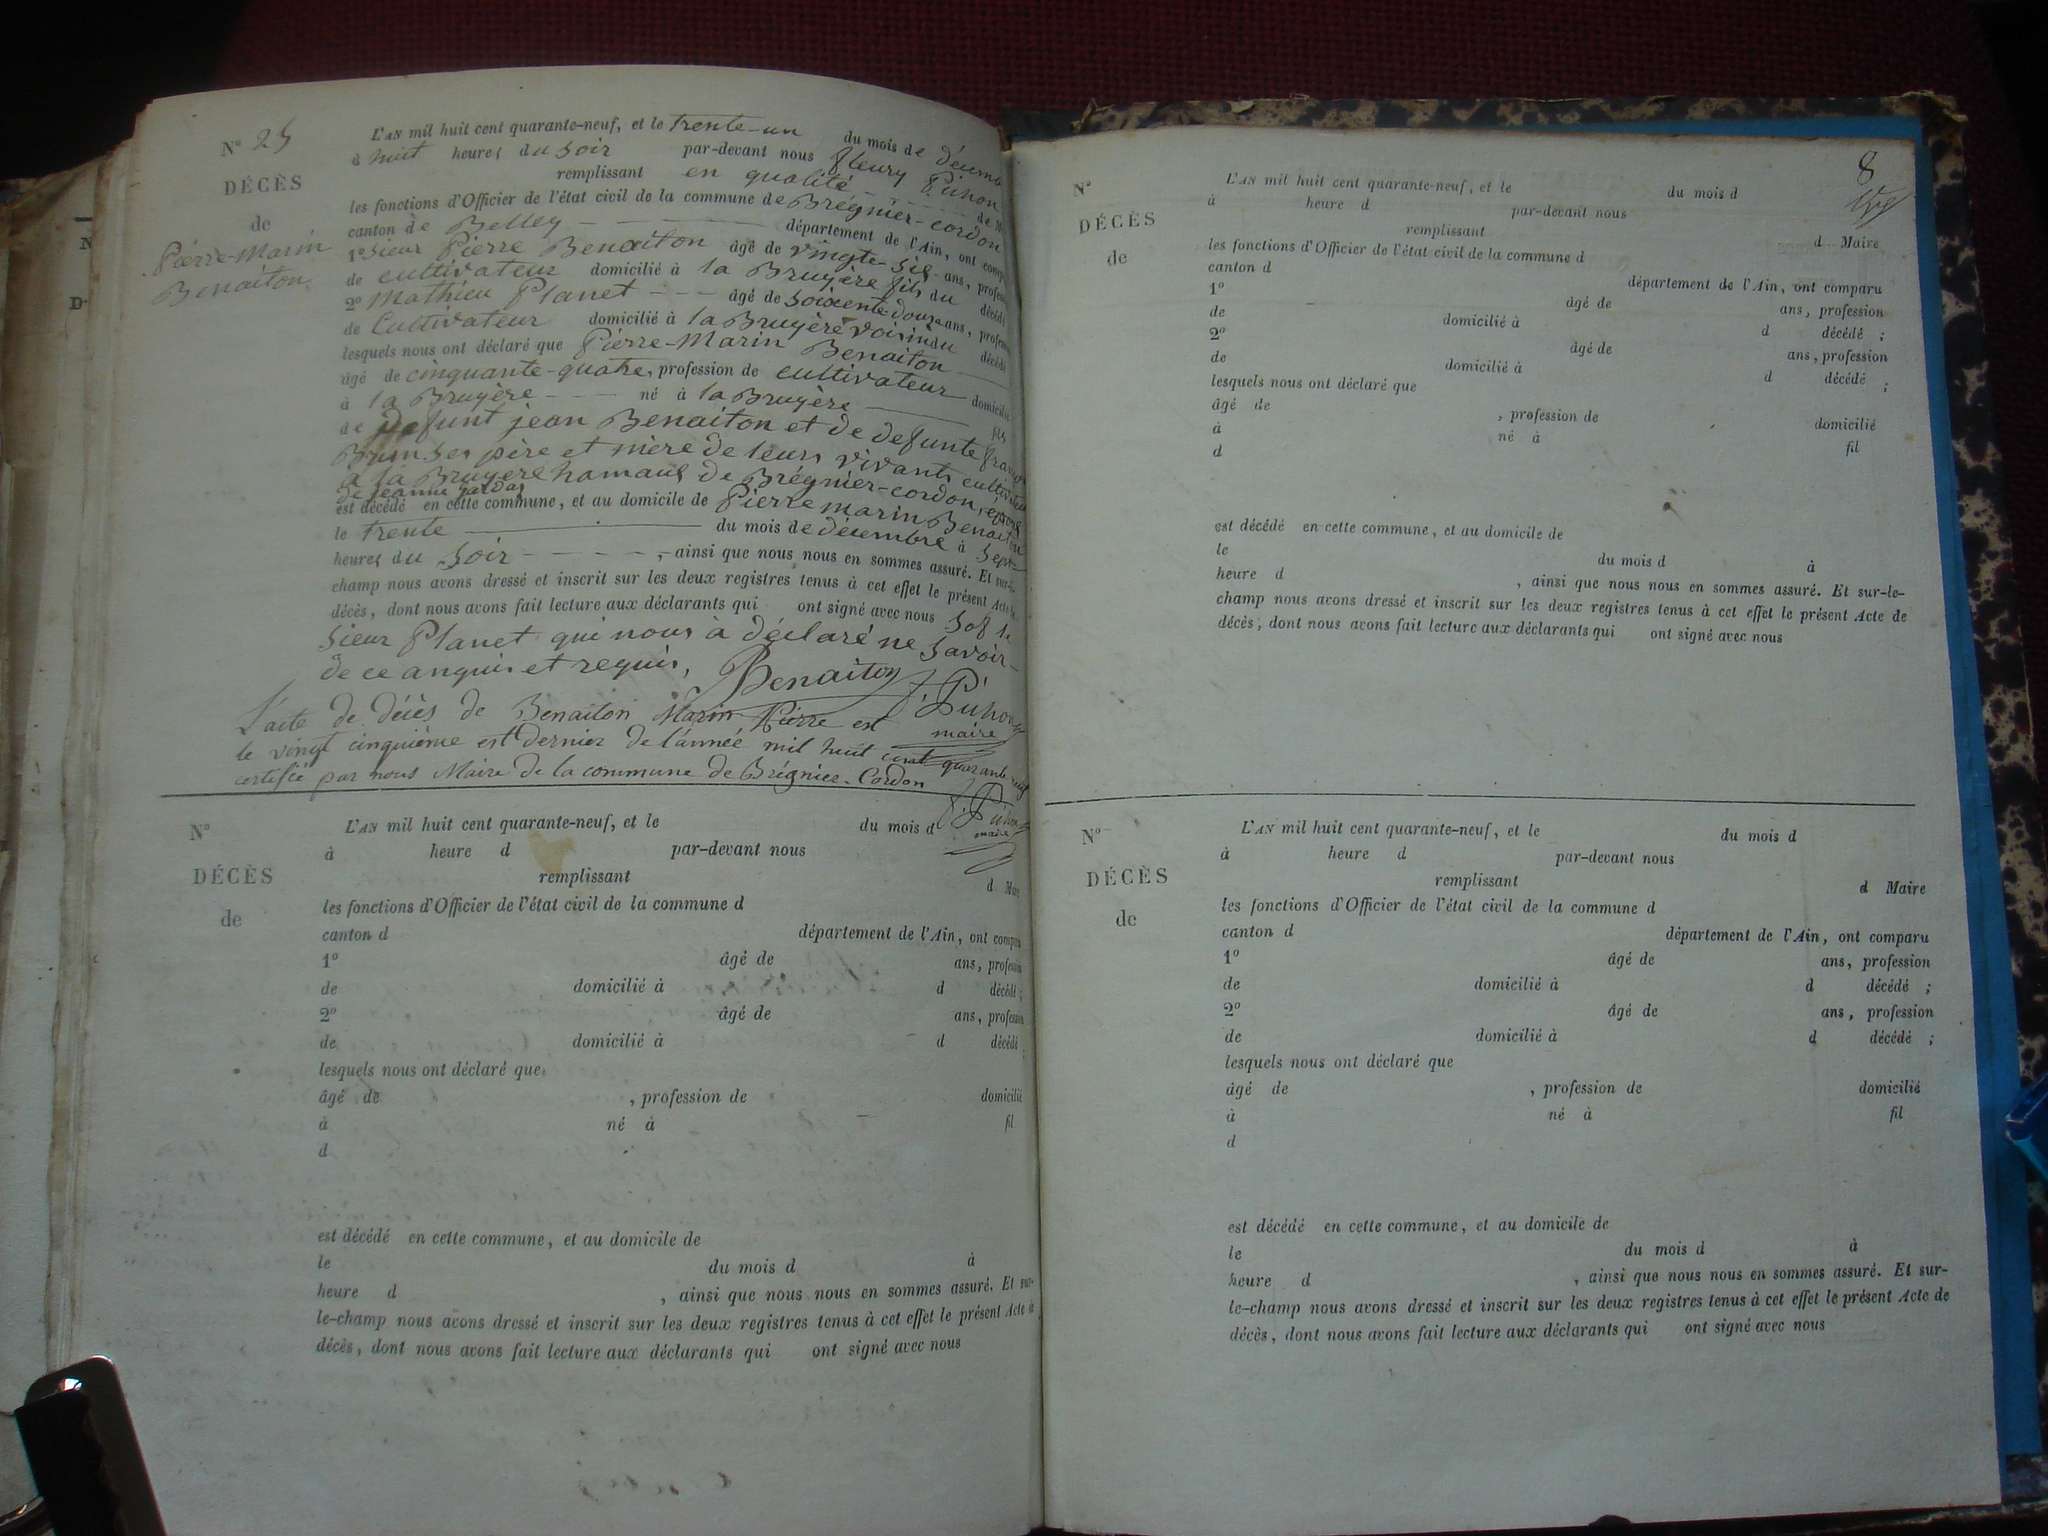 N° 25
DÉCÈS
de
Pierre-Marin
Benaiton
L'AN mil huit cent quarante-neuf, et le trente-un du mois de décemb
à huit heures du soir par-devant nous fleury Puhon
remplissant en qualité de M
les fonctions d'Officier de l'état civil de la commune de Brégnier-cordon
canton de Belley département de l'Ain, ont comp
1° sieur Pierre Benaiton âgé de vingte-six ans, profess
de cultivateur domicilié à la Bruyère fils du décédé
2° Mathieu Planet âgé de soixente douze ans, profess
de Cultivateur domicilié à la Bruyère voisin du décédé
lesquels nous ont déclaré que Pierre-Marin Benaiton
âgé de cinquante-quatre, profession de cultivateur domicilié
à la Bruyère né à la Bruyère fils
de Defunt jean Benaiton et de defunte
ses père et mère de leurs vivants
à la Bruyere hamaus de Brégnier-cordon, epoux
de jeanne
est décédé en cette commune, et au domicile de Pierre marin Benaiton
le trente du mois de décembre à sept
heures du soir, ainsi que nous nous en sommes assuré. Et sur-le-
champ nous avons dressé et inscrit sur les deux registres tenus à cet effet le présent Acte de
décès, dont nous avons fait lecture aux déclarants qui ont signé avec nous sof le
sieur Planet qui nous à déclaré ne savoir
de ce anquis et requis, Benaiton f. Puhon
maire
L'acte de décès de Benaiton Marin Pierre est
le vingt cinquième est dernier de l'année mil huit cent quarante neuf
certifié par nous Maire de la commune de Brégnier-Cordon
f. Puhon
maire
N°
DÉCÈS
de
L'AN mil huit cent quarante-neuf, et le du mois d
à heure d par-devant nous
remplissant d Mair
les fonctions d'Officier de l'état civil de la commune d
canton d département de l'Ain, ont comparu
1° âgé de ans, profession
de domicilié à d décédé ;
2° âgé de ans, profession
de domicilié à d décédé ;
lesquels nous ont déclaré que
âgé de , profession de domicilié
à né à fil
d
est décédé en cette commune, et au domicile de
le du mois d à
heure d , ainsi que nous nous en sommes assuré. Et sur-
le-champ nous avons dressé et inscrit sur les deux registres tenus à cet effet le présent Acte d
décès, dont nous avons fait lecture aux déclarants qui ont signé avec nous
8
N°
DÉCÈS
de
L'AN mil huit cent quarante-neuf, et le du mois d
à heure d par-devant nous
remplissant d Maire
les fonctions d'Officier de l'état civil de la commune d
canton d département de l'Ain, ont comparu
1° âgé de ans, profession
de domicilié à d décédé ;
2° âgé de ans, profession
de domicilié à d décédé ;
lesquels nous ont déclaré que
âgé de , profession de domicilié
à né à fil
d
est décédé en cette commune, et au domicile de
le du mois d à
heure d , ainsi que nous nous en sommes assuré. Et sur-le-
champ nous avons dressé et inscrit sur les deux registres tenus à cet effet le présent Acte de
décès, dont nous avons fait lecture aux déclarants qui ont signé avec nous
N°
DÉCÈS
de
L'AN mil huit cent quarante-neuf, et le du mois d
à heure d par-devant nous
remplissant d Maire
les fonctions d'Officier de l'état civil de la commune d
canton d département de l'Ain, ont comparu
1° âgé de ans, profession
de domicilié à d décédé ;
2° âgé de ans, profession
de domicilié à d décédé ;
lesquels nous ont déclaré que
âgé de , profession de domicilié
à né à fil
d
est décédé en cette commune, et au domicile de
le du mois d à
heure d , ainsi que nous nous en sommes assuré. Et sur-
le-champ nous avons dressé et inscrit sur les deux registres tenus à cet effet le présent Acte de
décès, dont nous avons fait lecture aux déclarants qui ont signé avec nous